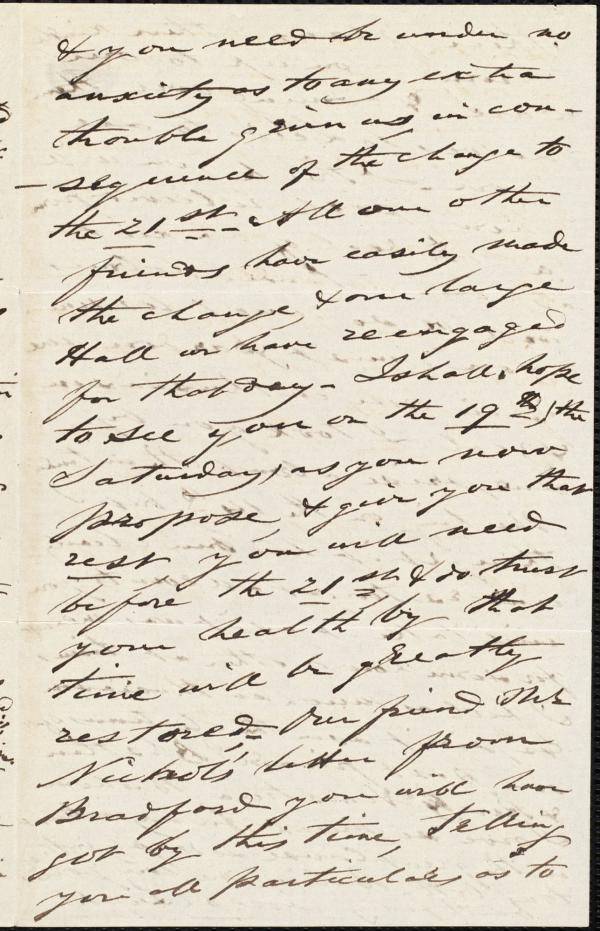 & you need be under no
anxiety as to any extra
trouble given us in con-
-sequence of the change to
the 21st - All our other
friends have easily made
the change, & our large
Hall we have reengaged
for that day - I shall hope
to see you on the 19th, (the
Saturday) as you now
propose, & give you that
rest you will need
before the 21st & do trust
your health by that
time will be greatly
restored - Our friend Mr
Nichols' letter from
Bradford you will have
got by this time, telling
you all particulars as to